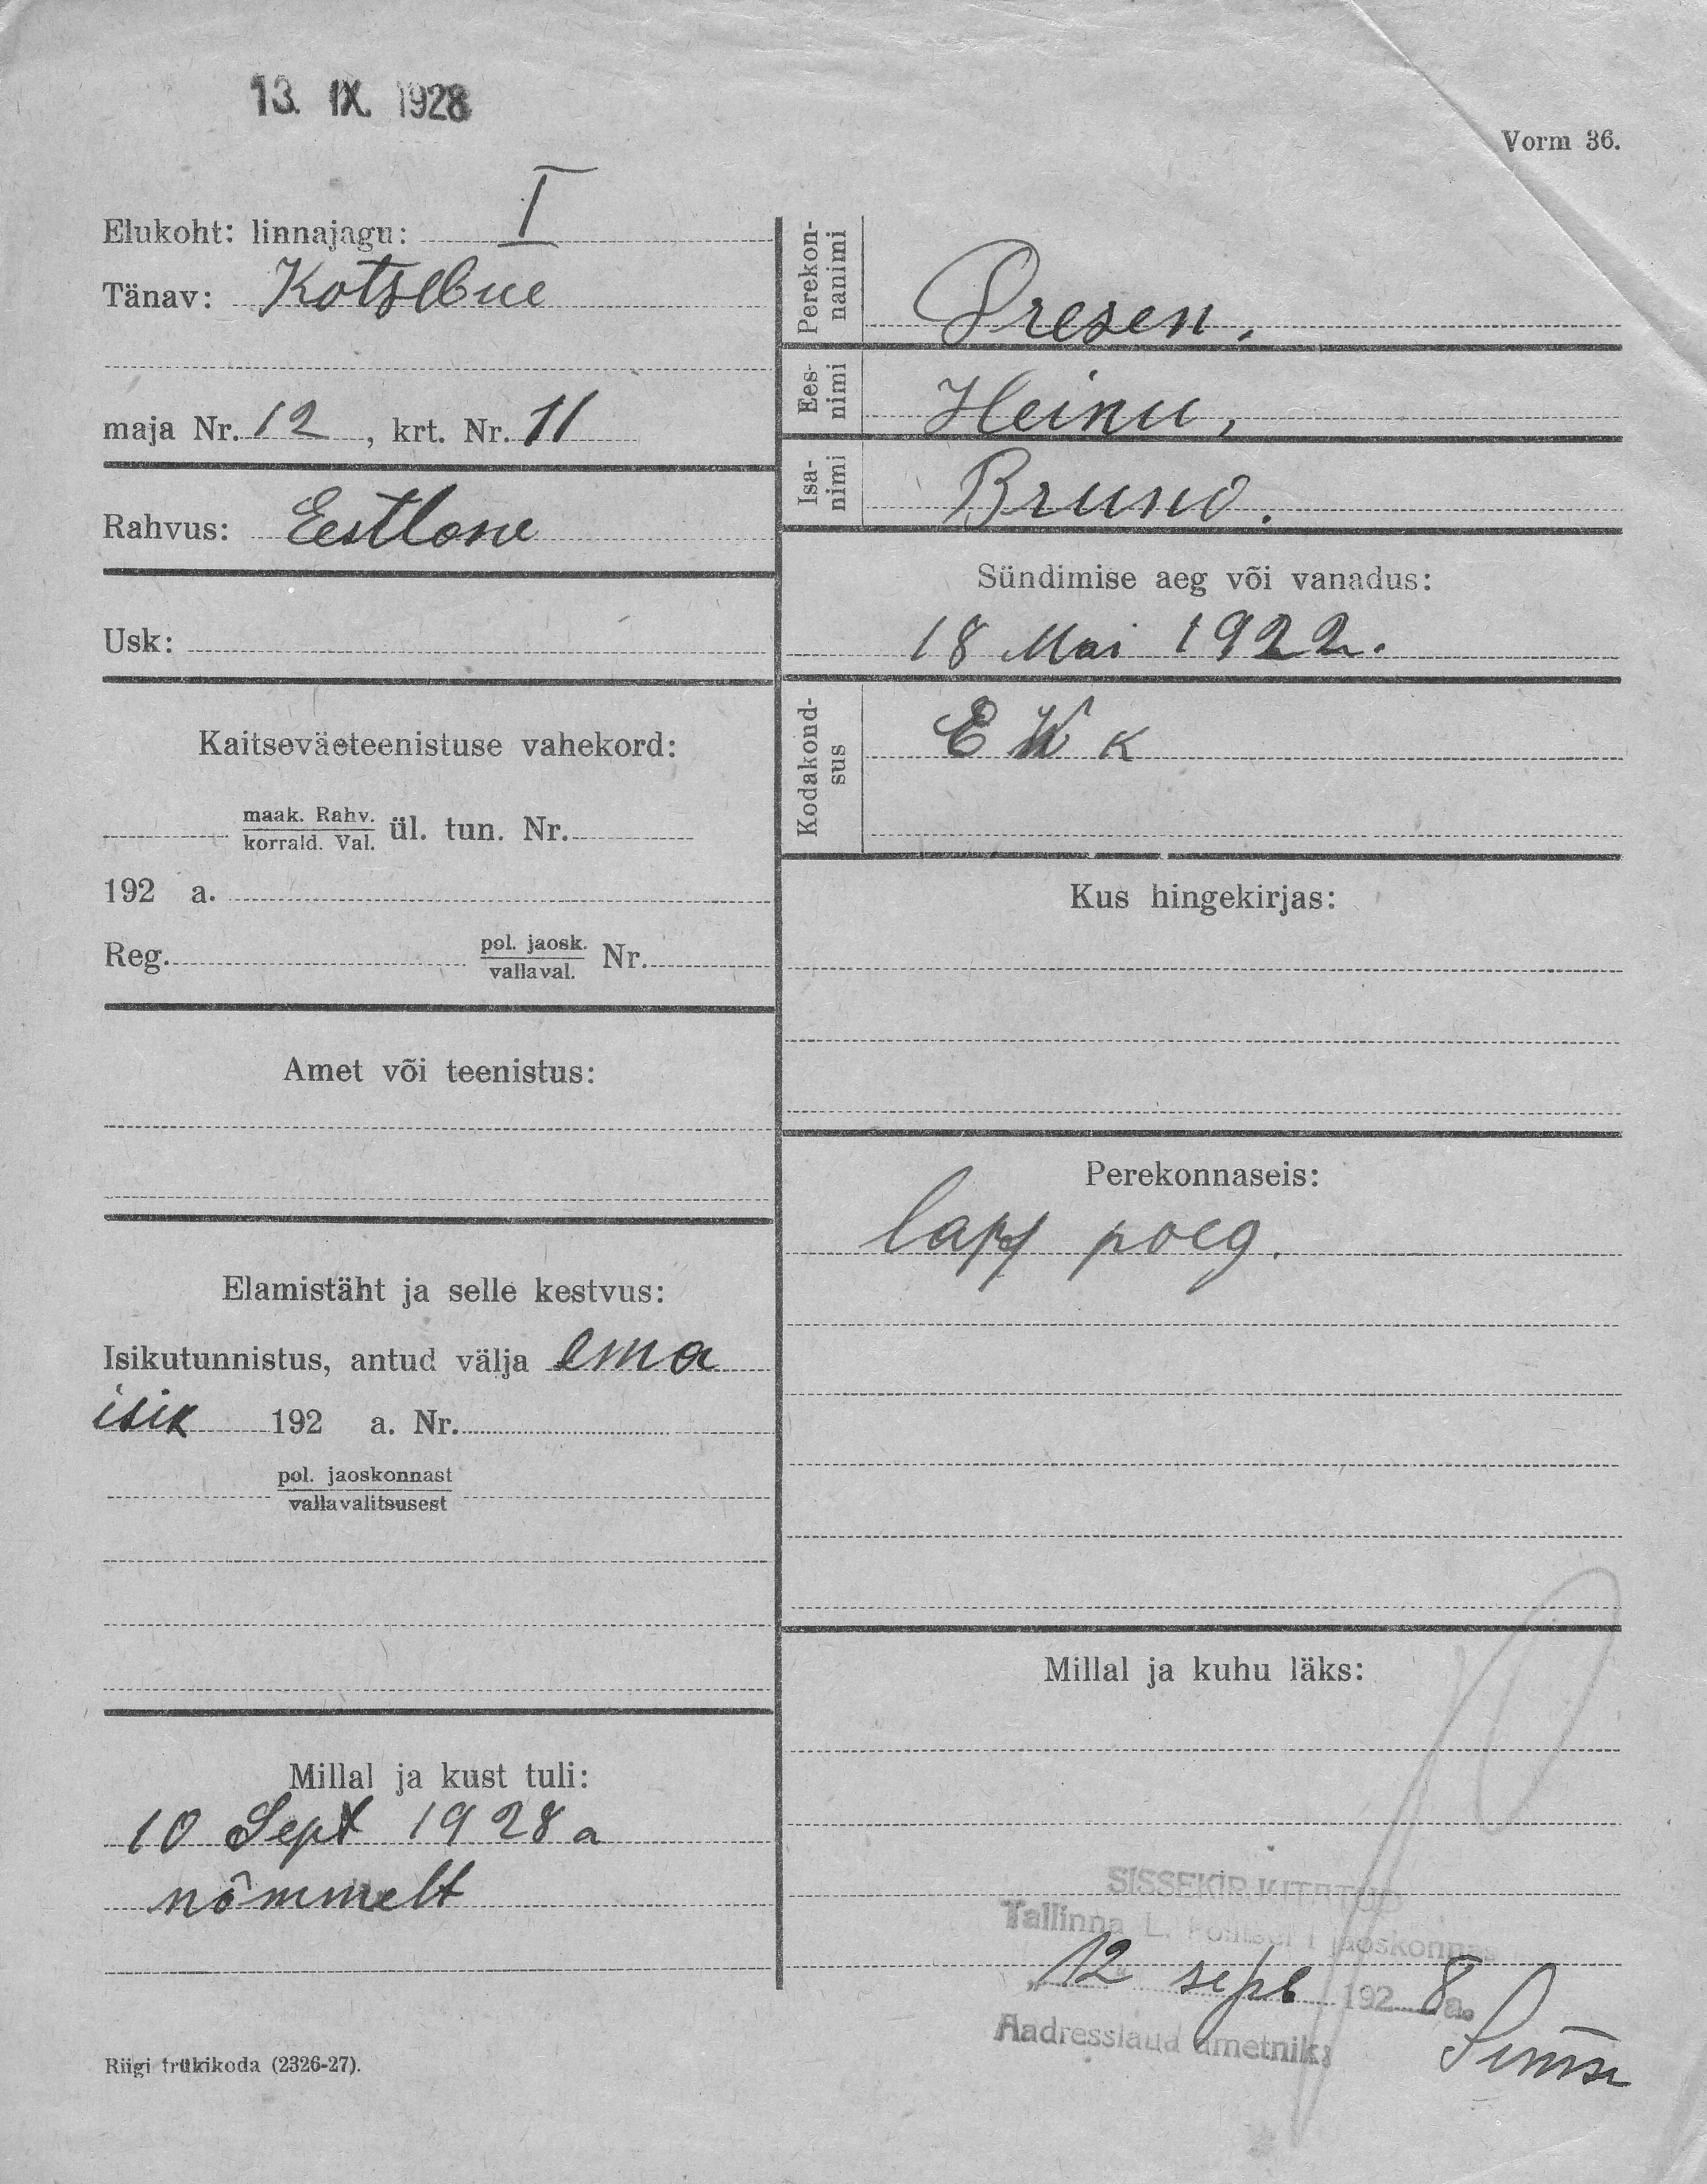 13. IX. 1928
Vorm 36.
Elukoht: linnajagu: I
Tänav: Kotsebue
maja Nr. 12, krt. Nr. 11
Rahvus: Eestlane
Usk:
Kaitseväeteenistuse vahekord:
maak. Rahv.
korrald. Val. ül. tun. Nr.
192 a.
Reg. pol. jaosk. Nr.
vallaval.
Amet või teenistus:
Elamistäht ja selle kestvus:
Isikutunnistus, antud välja ema
isik 192 a. Nr.
pol. jaoskonnast
vallavalitsusest
Millal ja kust tuli:
10 Sept 1928 a
nõmmelt
Riigi trükikoda (2326-27).
Perekon-
nanimi
Dresen.
Ees-
nimi
Heinu,
Isa-
nimi
Bruno.
Sündimise aeg või vanadus:
18 Mai 1922.
Kodakond-
sus
E W K
Kus hingekirjas:
Perekonnaseis:
laps poeg.
Millal ja kuhu läks:
SISSEKIRJUTATUD
Tallinna L. Politsei I jaoskonnas
„12" sept 1928 a.
Aadresslaua ametnik: